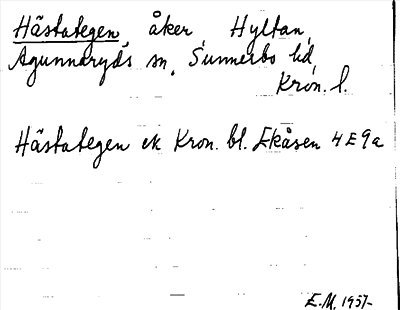 Hästategen, åker, Hyltan,
Agunnaryds sn, Sunnerbo hd,
Kron. l.
Hästategen ek Kron. bl. Ekåsen 4E9a
E.M. 1957